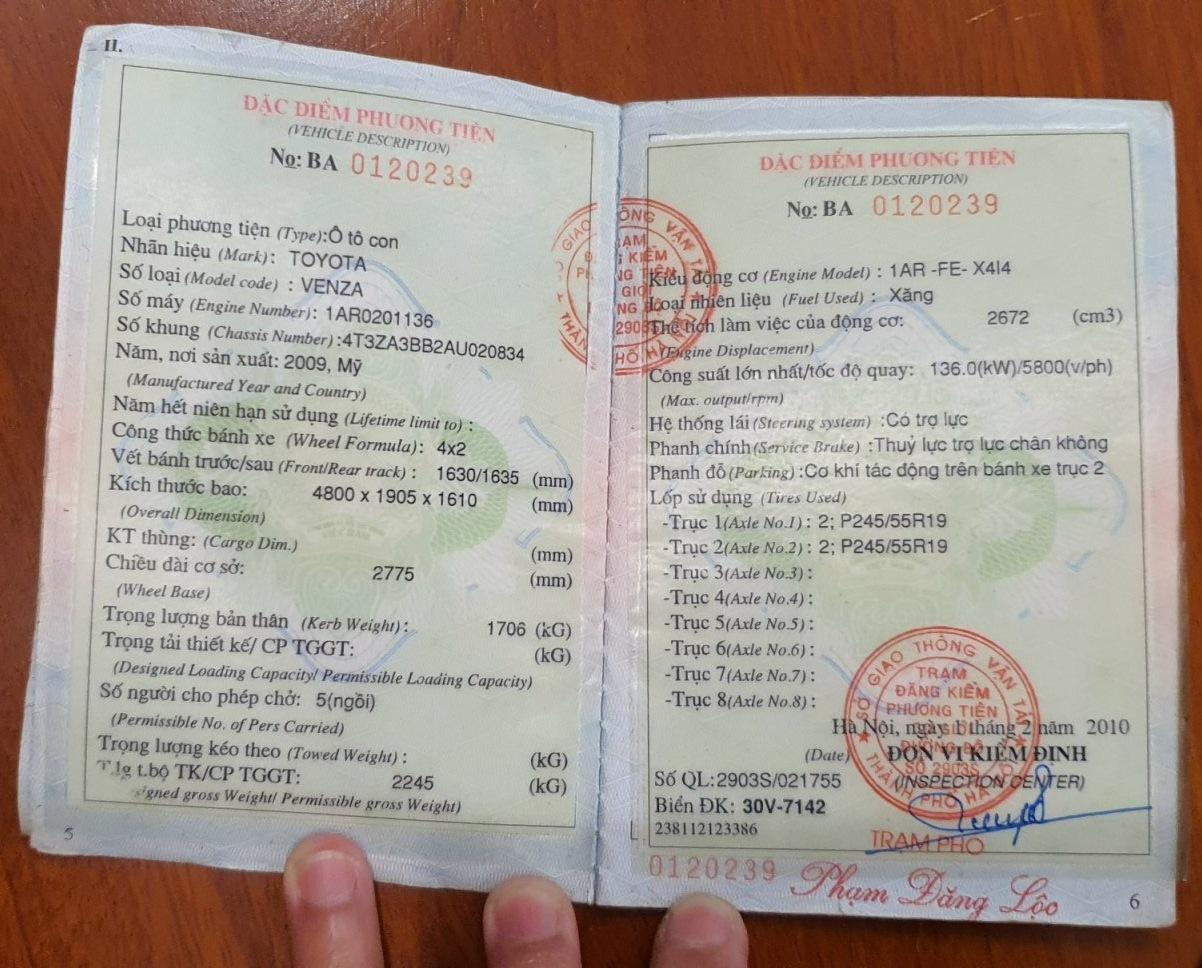 II.
ĐẶC ĐIỂM PHƯƠNG TIỆN
(VEHICLE DESCRIPTION)
No: BA 0120239
Loại phương tiện (Type):Ô tô con
Nhãn hiệu (Mark): TOYOTA
Số loại (Model code) : VENZA
Số máy (Engine Number): 1AR0201136
Số khung (Chassis Number):4T3ZA3BB2AU020834
Năm, nơi sản xuất: 2009, Mỹ
(Manufactured Year and Country)
Năm hết niên hạn sử dụng (Lifetime limit to) :
Công thức bánh xe (Wheel Formula): 4x2
Vết bánh trước/sau (Front/Rear track) : 1630/1635 (mm)
Kích thước bao: 4800 x 1905 x 1610 (mm)
(Overall Dimension)
KT thùng: (Cargo Dim.) (mm)
Chiều dài cơ sở: 2775 (mm)
(Wheel Base)
Trọng lượng bản thân (Kerb Weight): 1706 (kG)
Trọng tải thiết kế/ CP TGGT: (kG)
(Designed Loading Capacity/ Permissible Loading Capacity)
Số người cho phép chở: 5(ngồi)
(Permissible No. of Pers Carried)
Trọng lượng kéo theo (Towed Weight) : (kG)
T.lg t.bộ TK/CP TGGT: 2245 (kG)
signed gross Weight/ Permissible gross Weight)
5
ĐẶC ĐIỂM PHƯƠNG TIỆN
(VEHICLE DESCRIPTION)
No: BA 0120239
Kiểu động cơ (Engine Model) : 1AR -FE- X4I4
Loại nhiên liệu (Fuel Used) : Xăng
Thể tích làm việc của động cơ: 2672 (cm3)
(Engine Displacement)
Công suất lớn nhất/tốc độ quay: 136.0(kW)/5800(v/ph)
(Max. output/rpm)
Hệ thống lái (Steering system) :Có trợ lực
Phanh chính(Service Brake) :Thuỷ lực trợ lực chân không
Phanh đỗ (Parking) :Cơ khí tác động trên bánh xe trục 2
Lốp sử dụng (Tires Used)
-Trục 1(Axle No.1) : 2; P245/55R19
-Trục 2(Axle No.2) : 2; P245/55R19
-Trục 3(Axle No.3) :
-Trục 4(Axle No.4) :
-Trục 5(Axle No.5) :
-Trục 6(Axle No.6) :
-Trục 7(Axle No.7) :
-Trục 8(Axle No.8) :
SỞ GIAO THÔNG VẬN TẢI
TRẠM
ĐĂNG KIỂM
PHƯƠNG TIỆN
SỐ 2903S
THÀNH PHỐ HÀ NỘI
Hà Nội, ngày 1 tháng 2 năm 2010
(Date) ĐƠN VỊ KIỂM ĐỊNH
Số QL:2903S/021755 (INSPECTION CENTER)
Biển ĐK: 30V-7142
238112123386
TRẠM PHÓ
0120239 Phạm Đăng Lộc
6